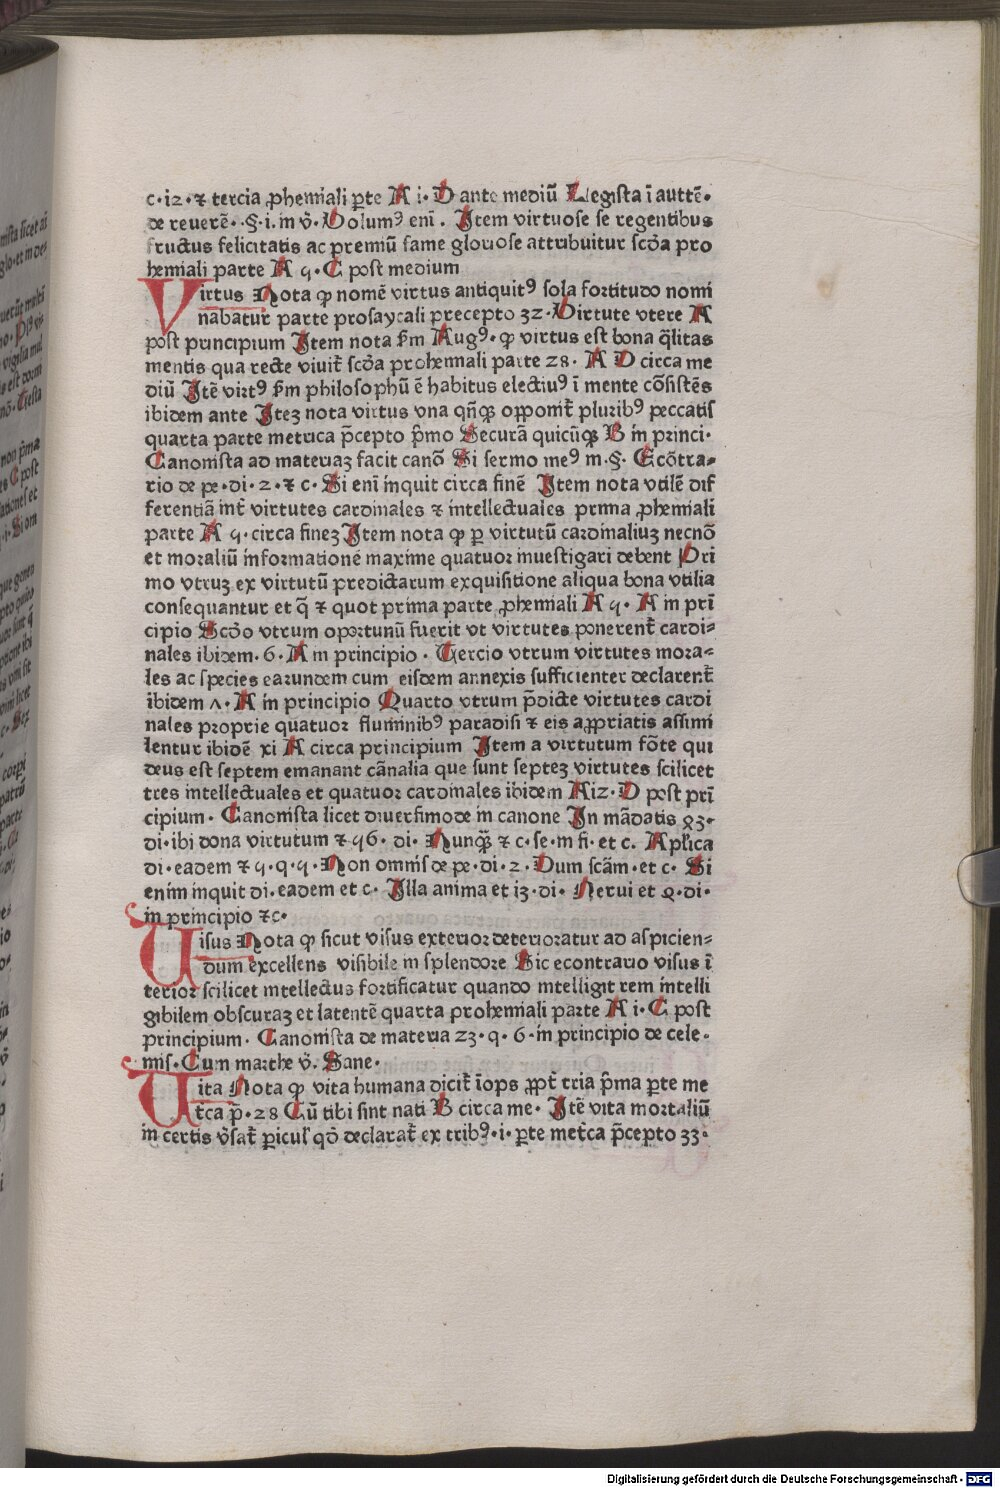 c·i2·⁊ tercia ꝓhemiali ꝑte A i·D ante mediū Legista ī auttē·
de reuerē·.§·i.in v̄·Uolumꝰ eni̅ . Item virtuose se regentibus
fructus felicitatis ac premiū fame gloriose attribuitur scd̄a pro
hemiali parte A ɋ·C post medium
Uirtus Nota ꝙ nomē virtus antiquitꝰ sola fortitudo nomi
nabatur parte prosaycali precepto 32·Uirtute vtere A
post principium Item nota ẜm Augꝰ·ꝙ virtus est bona q̄litas
mentis qua recte viuit̄ scd̄a prohemiali parte 28· A D circa me
diū Itē virtꝰ ẜm philosophū ē habitus electiuꝰ ī mente cōsistēs
ibidem ante Iteꝫ nota virtus vna qn̄qꝫ opponit̄ pluribꝰ peccatis
quarta parte metrica p̄cepto p̄mo Securā quicūqꝫ B in princi·
Canonista ad materiaꝫ facit canō Si sermo meꝰ in·§· Ecōtra-
rio de pe·di·2·⁊ c·Si eni̅ inquit circa finē Item nota vtilē dif
ferentiā int̄ virtutes cardinales ⁊ intellectuales prima ꝓhemiali
parte A ɋ·circa fineꝫ Item nota ꝙ ꝑ virtutū cardinaliuꝫ necnō
et moraliū informationē maxime quatuor inuestigari debent Pri
mo vtruꝫ ex virtutū predictarum exquisitione aliqua bona vtilia
consequantur et q̄ ⁊ quot prima parte ꝓhemiali A ɋ· A in pri̅
cipio Scd̄o vtrum oportunū fuerit vt virtutes ponerent̄ cardi-
nales ibidem·6·A in principio · Tercio vtrum virtutes mora-
les ac species earundem cum eisdem annexis sufficienter declarent̄
ibidem ʌ·A in principio Quarto vtrum p̄dicte virtutes cardi
nales proprie quatuor fluminibꝰ paradisi ⁊ eis aꝓpriatis assimi
lentur ibidē xi A circa principium Item a virtutum fōte qui
deus est septem emanant cānalia que sunt septeꝫ virtutes scilicet
tres intellectuales et quatuor cardinales ibidem A i2·D post pri̅
cipium· Canonista licet diuersimode in canone In mādatis ꝝ3·
di·ibi dona virtutum ⁊ ɋ6· di· Nunqꝫ̄ ⁊ c·se·in fi·et c· Apl̄ica
di·eadem ⁊ ɋ·q·ɋ·Non omnis de pe·di·2·Dum scām·et c· Si
enim inquit di·eadem et c· Illa anima et i3·di· Nerui et ꝝ·di·
in principio ⁊c·
Uisus Nota ꝙ sicut visus exterior deterioratur ad aspicien-
dum excellens visibile in splendore Sic econtrario visus ī
terior scilicet intellectus fortificatur quando intelligit rem intelli
gibilem obscuraꝫ et latentē quarta prohemiali parte A i·C post
principium· Canonista de materia 23·q·6·in principio de cele·
mis·Cum marthe v̄·Sane·
Uita Nota ꝙ vita humana dicit̄ īops ꝓpt̄ tria p̄ma ꝑte me
t̄ca p̄·28 Cū tibi sint nati B circa me· Itē vita mortaliū
in certis v̄sat̄ ꝑicul̉ qd̄ declarat̄ ex tribꝰ·i·ꝑte met̄ca p̄cepto 33·
Digitalisierung gefördert durch die Deutsche Forschungsgemeinschaft · DFG